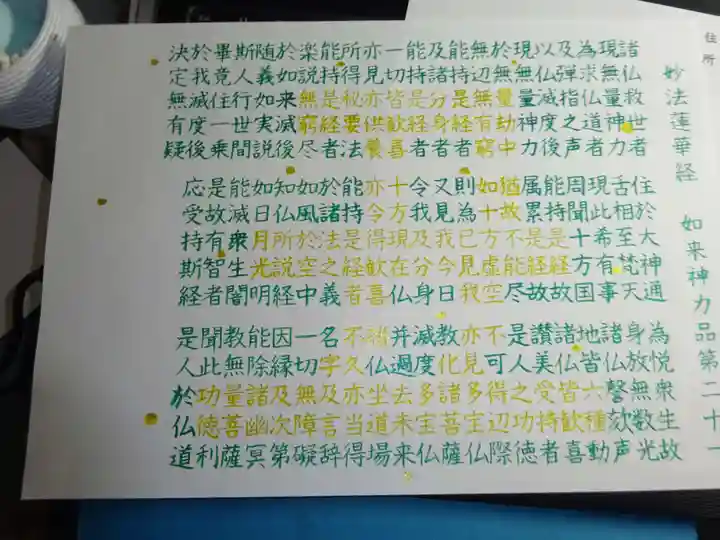 住所
妙法蓮華経 如来神力品第二十一
諸仏救世者 住於大神通 為悦衆生故
現無量神力 舌相至梵天 身放無数光
為求仏道者 現此希有事 諸仏謦欬声
及弾指之声 周聞十方国 地皆六種動
以仏滅度後 能持是経故 諸仏皆歓喜
現無量神力 属累是経故 讃美受持者
於無量劫中 猶故不能尽 是人之功徳
無辺無有窮 如十方虚空 不可得辺際
能持是経者 則為已見我 亦見多宝仏
及諸分身者 又見我今日 教化諸菩薩
能持是経者 令我及分身 滅度多宝仏
一切皆歓喜 十方現在仏 并過去未来
亦見亦供養 亦令得歓喜 諸仏坐道場
所得秘要法 能持是経者 不久亦当得
能持是経者 於諸法之義 名字及言辞
楽説無窮尽 如風於空中 一切無障礙
於如来滅後 知仏所説経 因縁及次第
随義如実説 如日月光明 能除諸幽冥
斯人行世間 能滅衆生闇 教無量菩薩
畢竟住一乗 是故有智者 聞此功徳利
於我滅度後 応受持斯経 是人於仏道
決定無有疑